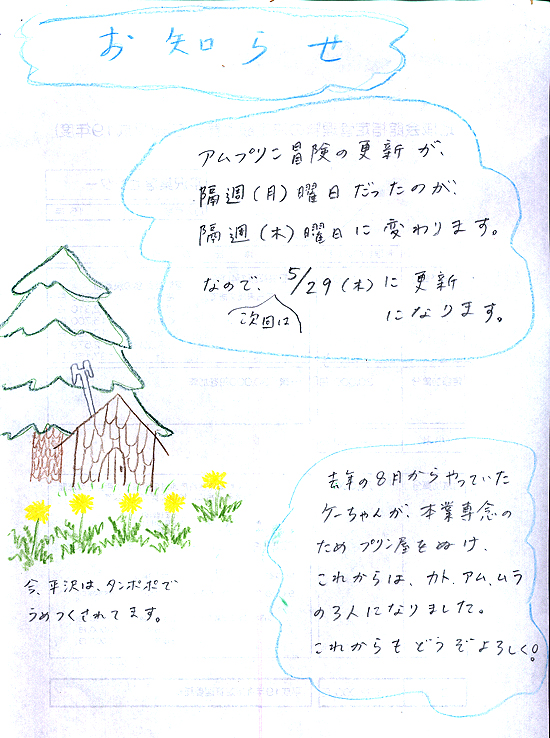 お知らせ
アムプリン冒険の更新が、
隔週(月)曜日だったのが、
隔週(木)曜日に変わります。
なので、次回は5/29(木)に更新
になります。
去年の8月からやっていた
ケーちゃんが、本業専念の
ため プリン屋をぬけ、
これからは、カト、アム、ムラ
の3人になりました。
これからもどうぞよろしく!
今、平沢は、タンポポで
うめつくされてます。